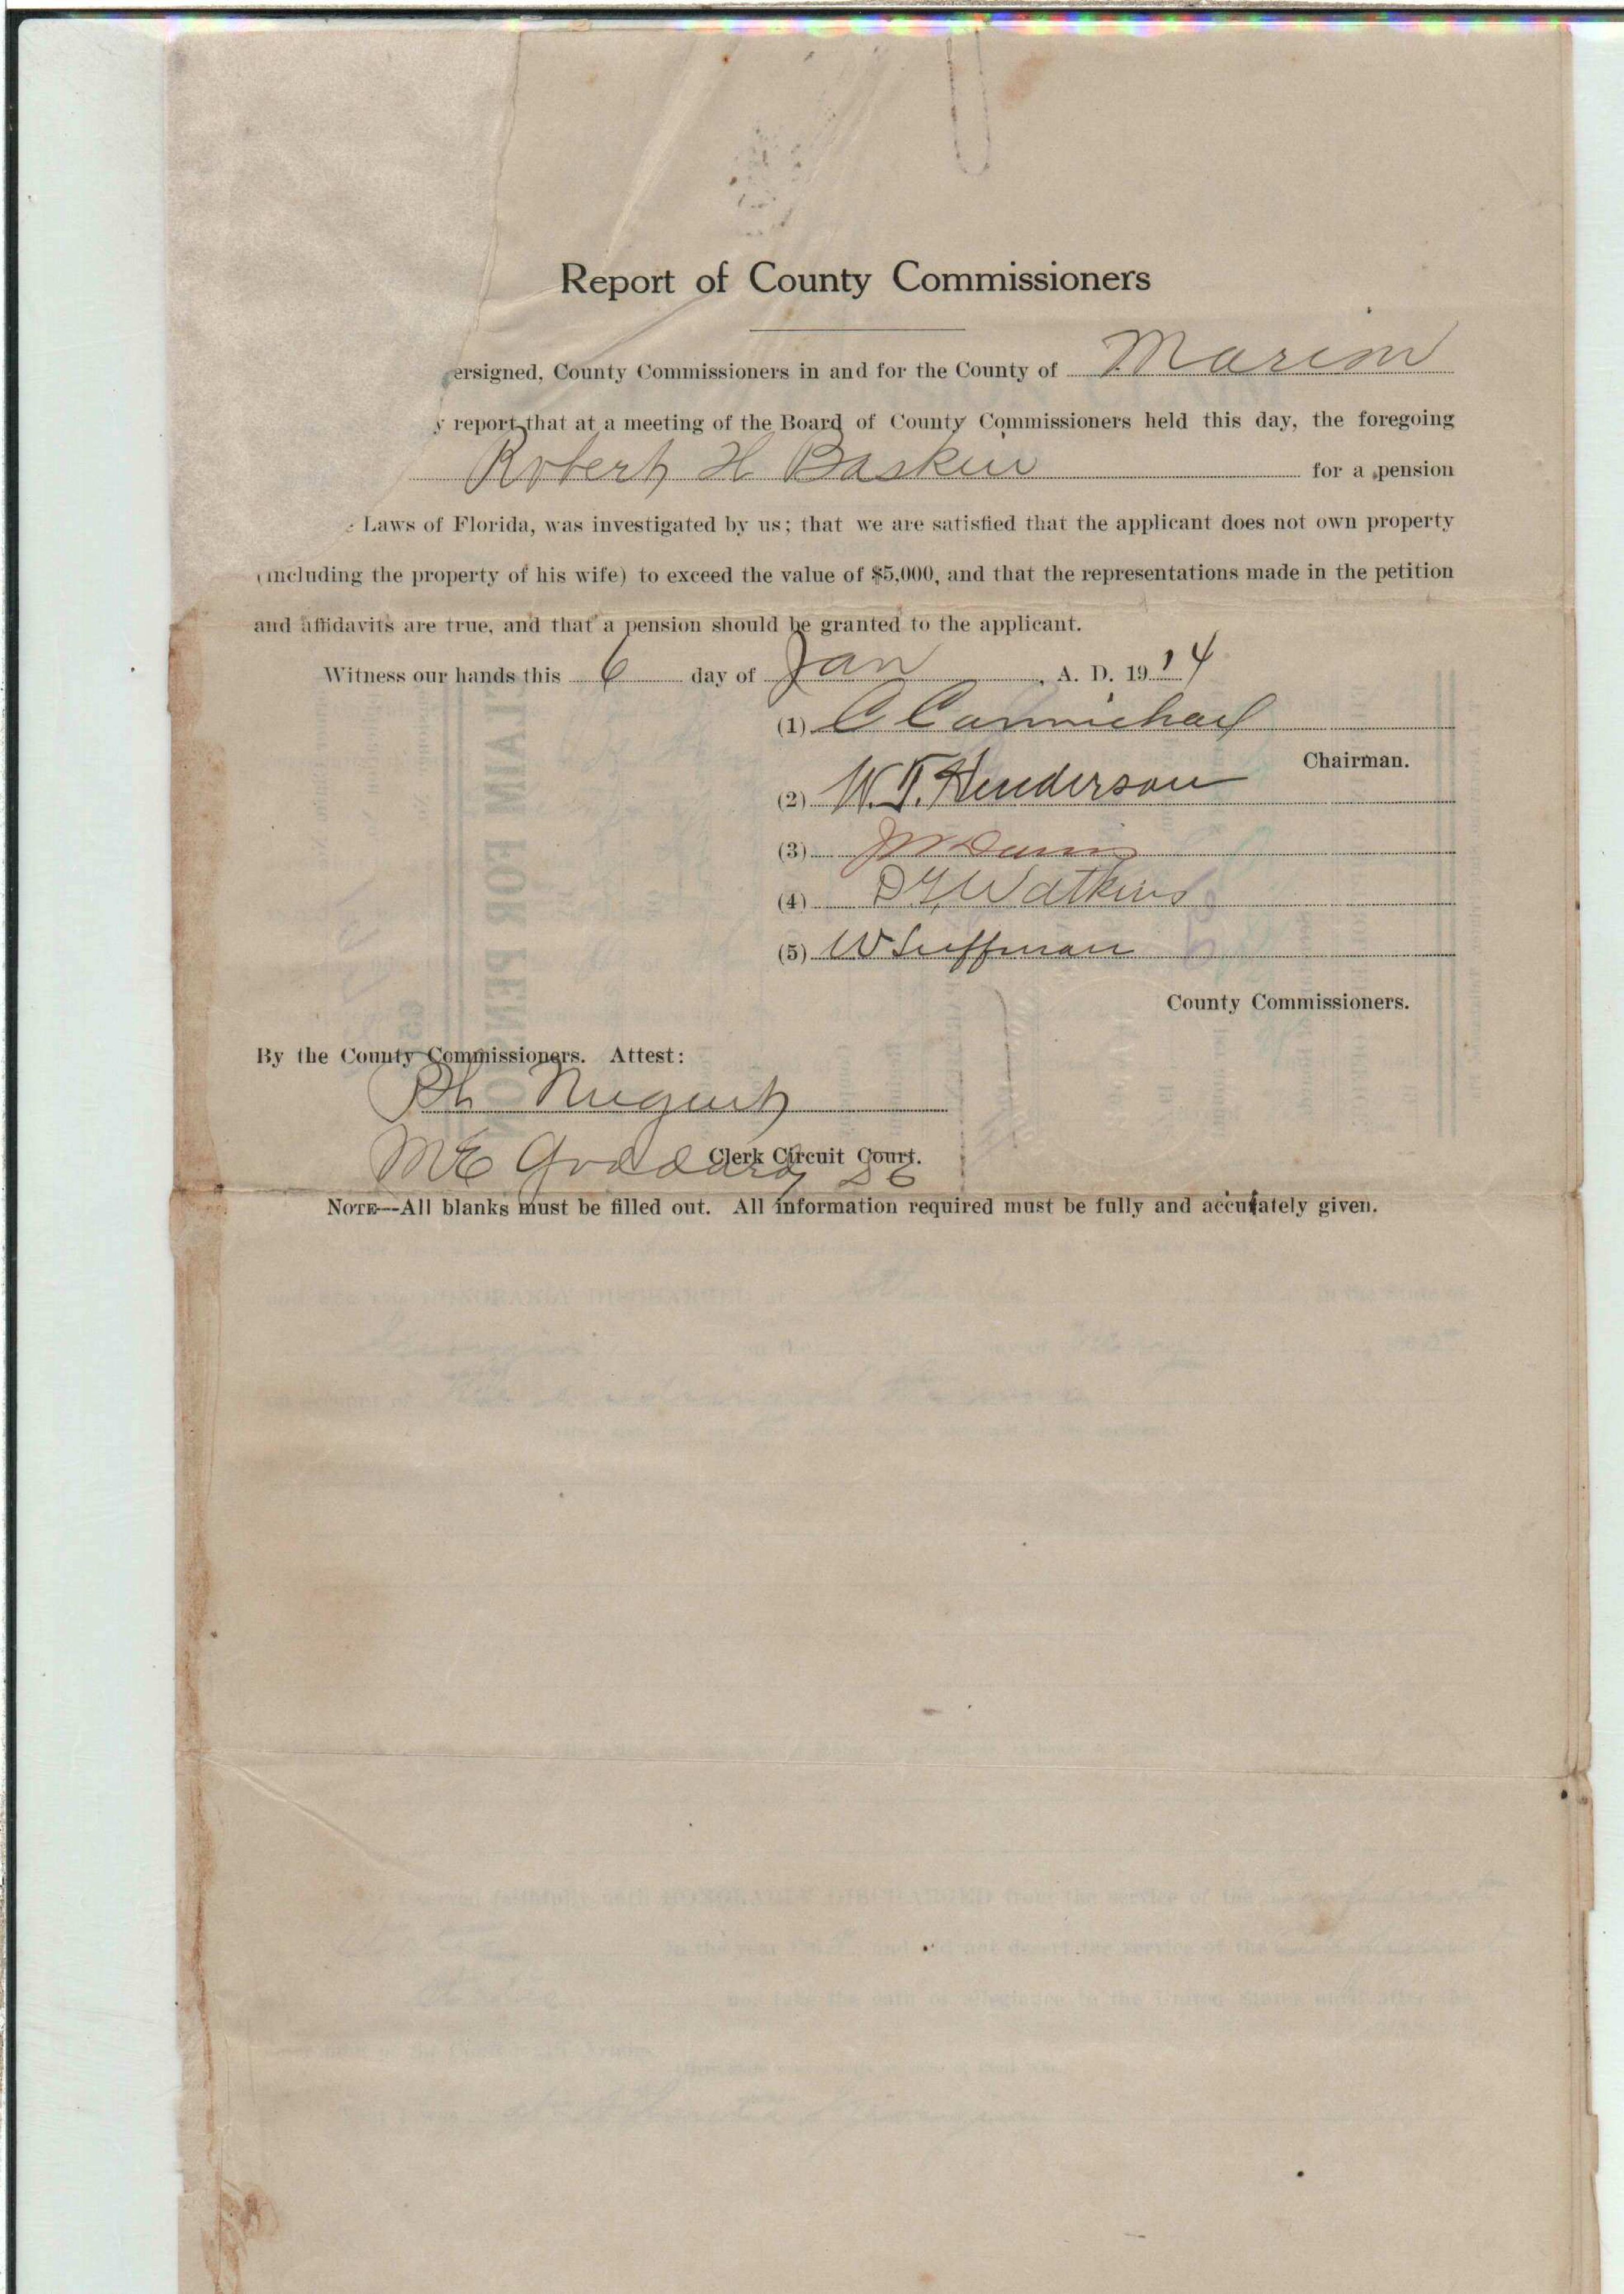 Report of County Commissioners
ersigned, County Commissioners in and for the County of Marion
y report that at a meeting of the Board of County Commissioners held this day, the foregoing
Robert H Baskin for a pension
e Laws of Florida, was investigated by us; that we are satisfied that the applicant does not own property
(including the property of his wife) to exceed the value of $5,000, and that the representations made in the petition
and affidavits are true, and that a pension should be granted to the applicant.
Witness our hands this 6 day of Jan, A. D. 1914
(1) C Carmichael
Chairman.
(2) W.T. Henderson
(3) Davis
(4) Watkins
(5) W Luffman
County Commissioners.
By the County Commissioners. Attest:
Ph Nugent
Clerk Circuit Court.
ME Goddard DC
NOTE--All blanks must be filled out. All information required must be fully and accurately given.